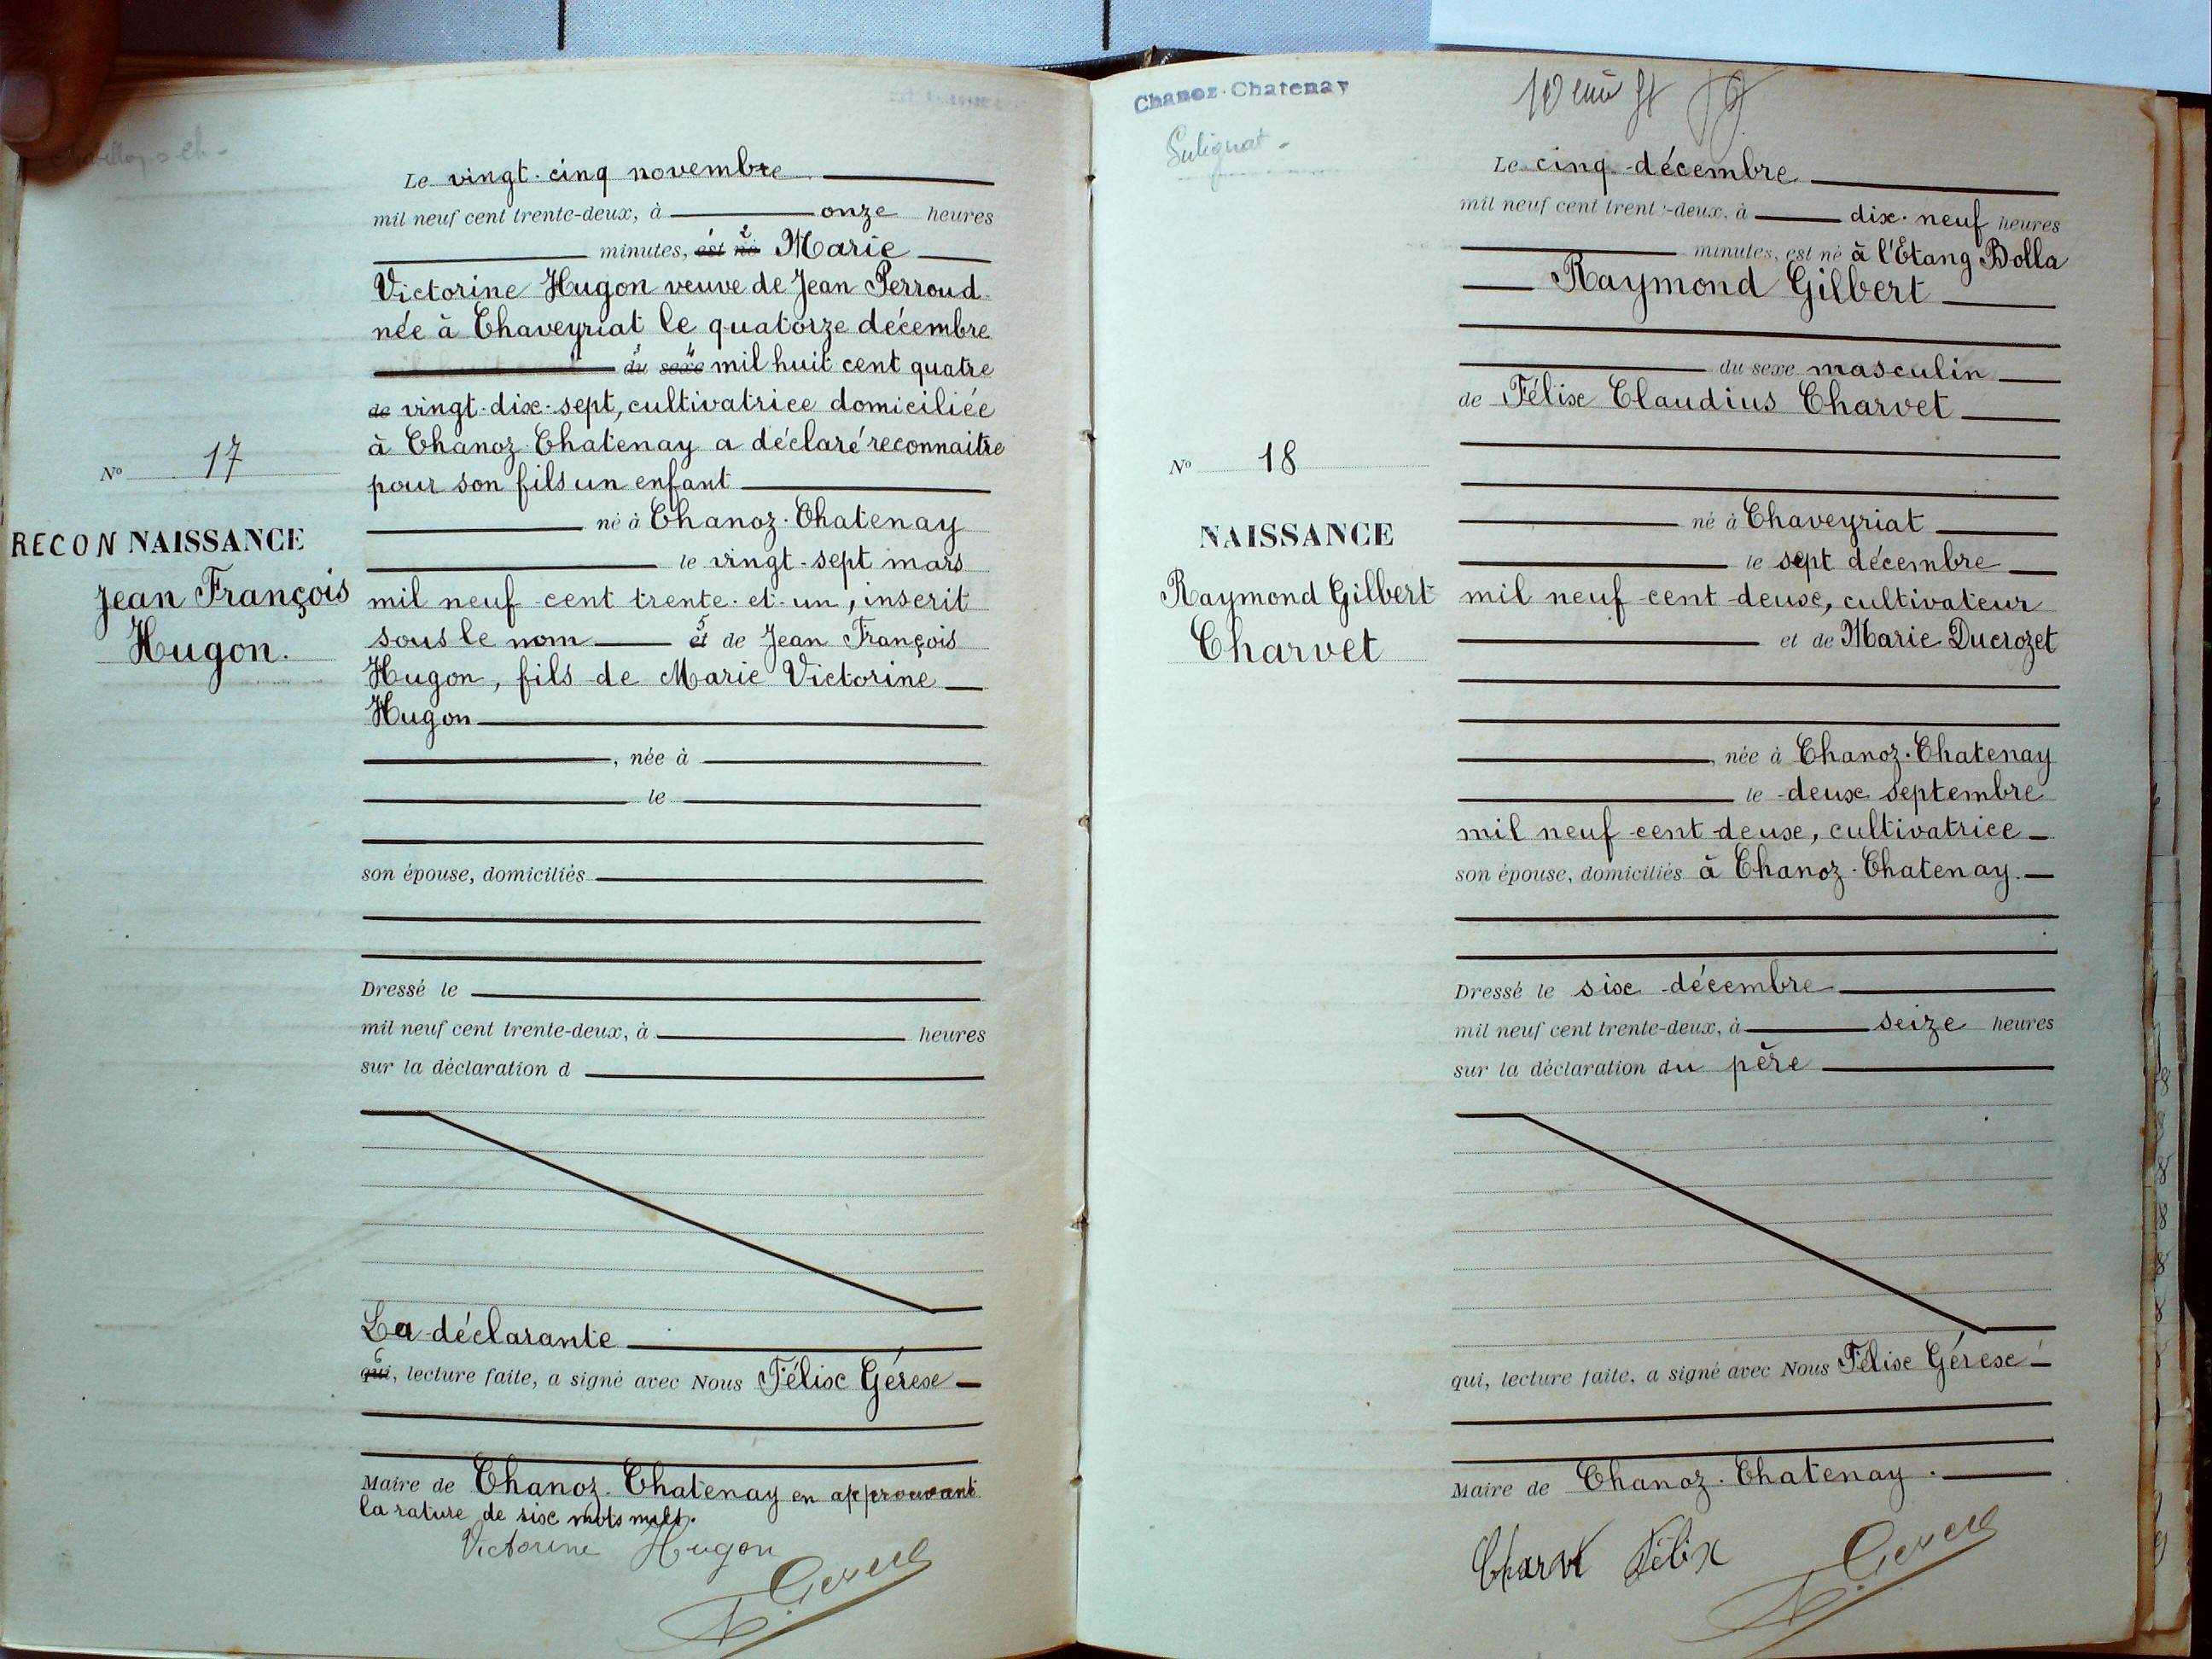 Le vingt-cinq novembre
mil neuf cent trente-deux, à onze heures
minutes, est né Marie
Victorine Hugon veuve de Jean Perroud
née à Chaveyriat le quatorze décembre
du sexe mil huit cent quatre
de vingt-dix-sept, cultivatrice domiciliée
à Chanoz-Chatenay a déclaré reconnaitre
pour son fils un enfant
né à Chanoz-Chatenay
le vingt-sept mars
mil neuf cent trente-et-un, inscrit
sous le nom et de Jean François
Hugon, fils de Marie Victorine
Hugon
, née à
le
son épouse, domiciliés
Dressé le
mil neuf cent trente-deux, à heures
sur la déclaration d
La déclarante
qui, lecture faite, a signé avec Nous Félix Gérex
Maire de Chanoz-Chatenay en approuvant
la rature de six mots nuls.
Victorine Hugon
N° 17
RECONNAISSANCE
Jean François
Hugon.
Chanoz-Chatenay
Sulignat-
Le cinq décembre
mil neuf cent trente-deux, à dix-neuf heures
minutes, est né à l'Etang Bolla
Raymond Gilbert
du sexe masculin
de Félix Claudius Charvet
né à Chaveyriat
le sept décembre
mil neuf cent deux, cultivateur
et de Marie Ducrozet
, née à Chanoz-Chatenay
le deux septembre
mil neuf cent deux, cultivatrice
son épouse, domiciliés à Chanoz-Chatenay.
Dressé le six décembre
mil neuf cent trente-deux, à seize heures
sur la déclaration du père
qui, lecture faite, a signé avec Nous Félix Gérex
Maire de Chanoz-Chatenay.
Charvet Félix
N° 18
NAISSANCE
Raymond Gilbert
Charvet